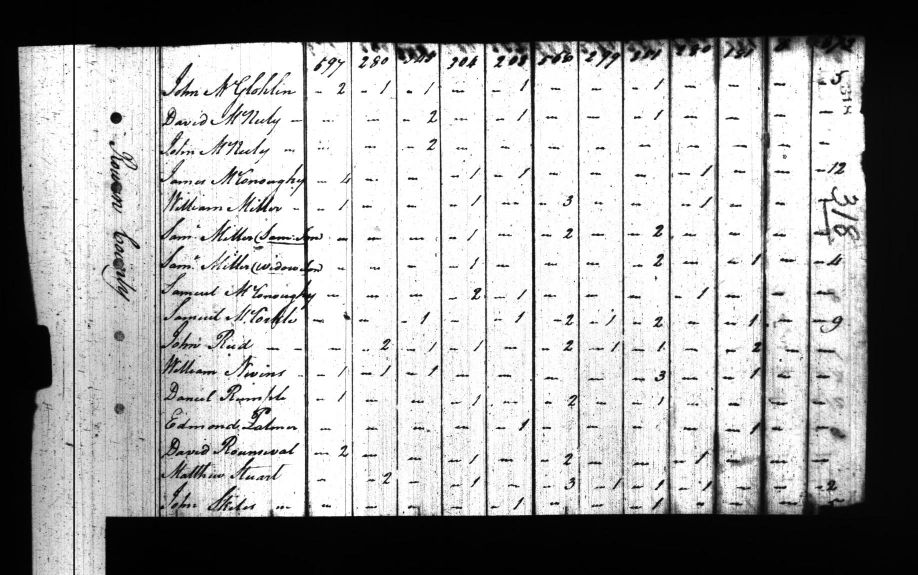 597 280 304 208 566 279 280
John McGlohlin - 2 - 1 - 1 - - 1 - - - 1 - - - - 5
David McNeely - - - - 2 - - 1 - - - 1 - - - -
John McNeely - - - - 2 - - - - - - - - - -
James McConoughy - 4 - - - - 1 - 1 - - - - 1 - - - 12
William Miller - - 1 - - - 1 - - 3 - - - 1 - - -
Saml Miller (Saml Son - - - - 1 - - 2 - - 2 - - - -
Saml Miller (widow Son - - - - 1 - - - - 2 - - 1 - - 4
Samuel McConoughy - - - - 2 - 1 - - - - 1 - - -
Samuel McCorkle - - - 1 - - 1 - 2 - 1 - 2 - - 1 - - 9
John Reed - - - 2 - 1 - 1 - - 2 - 1 - 1 - - 2 - - 1
William Nivins - 1 - 1 - 1 - - - - - 3 - - 1 - -
Daniel Rumple - 1 - - - 1 - - 2 - - 1 - - - -
Edmond Palmer - - - - - 1 - - - - - 1 - -
David Rounseval - 2 - - - 1 - - 2 - - - 1 - - -
Matthew Stuart - - 2 - - 1 - - 3 - 1 - 1 - 1 - - - 2
John Skiles - - - - - - 1 - - - 1 - - - -
Rowan County
318